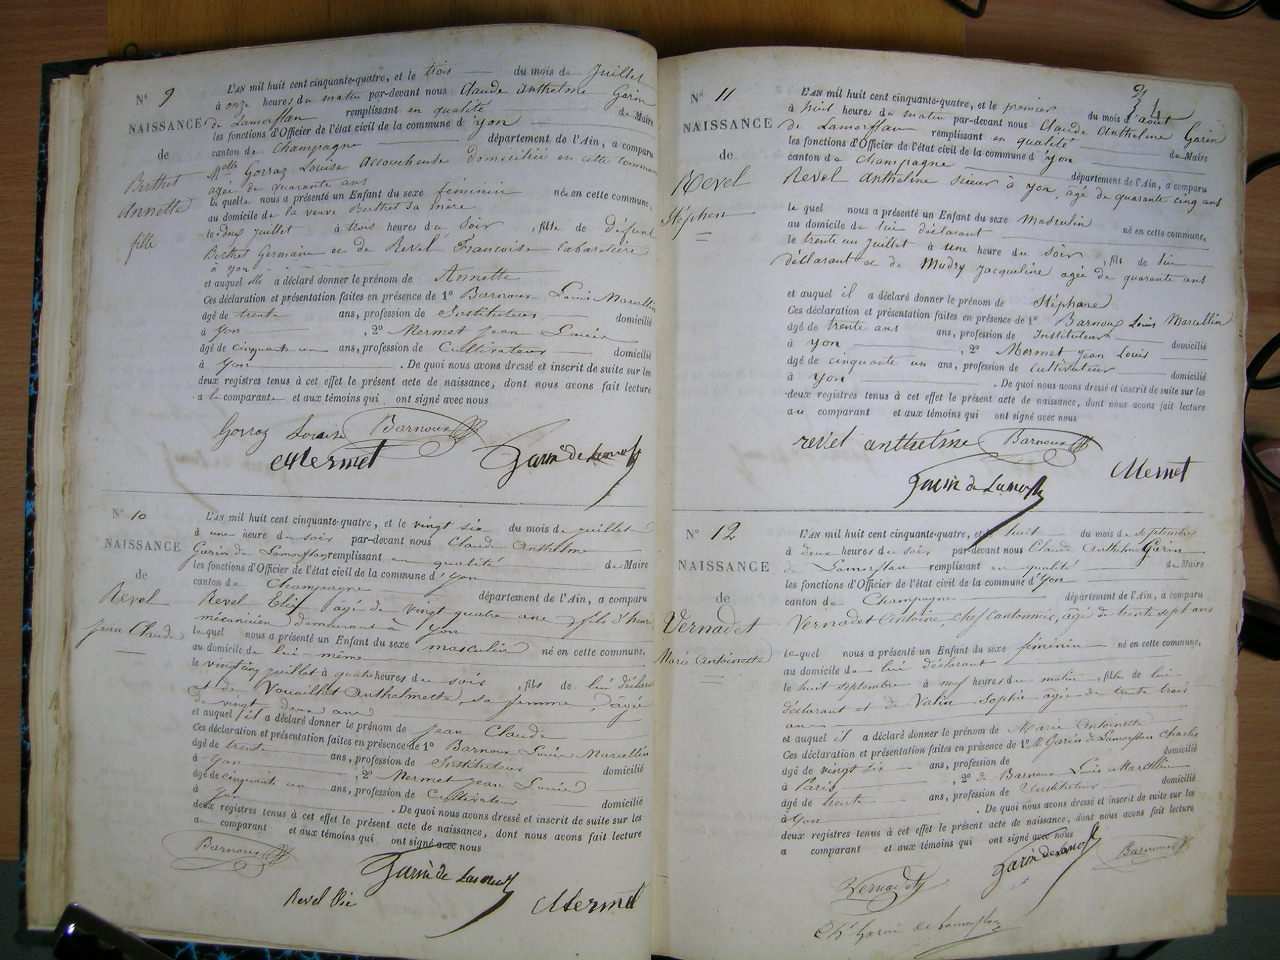 N° 9
NAISSANCE
de
Berthet
Annette
fille
L'AN mil huit cent cinquante-quatre, et le trois du mois de Juillet
à onze heures du matin par-devant nous Claude Anthelme Garin
de Lamorflan remplissant en qualité de Maire
les fonctions d'Officier de l'état civil de la commune d'yon
canton de Champagne département de l'Ain, a comparu
Melle Gorraz Louise accoucheuse domiciliée en cette commune
agée de quarante ans
la quelle nous a présenté un Enfant du sexe féminin né en cette commune,
au domicile de la veuve Berthet sa mère
le deux juillet à trois heures du soir, fille de défunt
Berthet Germain et de Revel Françoise cabaretière
à yon
et auquel elle a déclaré donner le prénom de Annette
Ces déclaration et présentation faites en présence de 1° Barnoux Louis Marcellin
âgé de trente ans, profession de Instituteur domicilié
à yon, 2° Mermet Jean Louis
âgé de cinquante un ans, profession de Cultivateur domicilié
à yon. De quoi nous avons dressé et inscrit de suite sur les
deux registres tenus à cet effet le présent acte de naissance, dont nous avons fait lecture
a la comparante et aux témoins qui ont signé avec nous
Gorraz Louise Barnoux
Mermet Garin de Lamorflan
N° 10
NAISSANCE
de
Revel
Jean Claude
L'AN mil huit cent cinquante-quatre, et le vingt six du mois de juillet
à une heure du soir par-devant nous Claude Anthelme
Garin de Lamorflan remplissant en qualité de Maire
les fonctions d'Officier de l'état civil de la commune d'yon
canton de Champagne département de l'Ain, a comparu
Revel Elie agé de vingt quatre ans fils d'
mécanicien demeurant à yon
lequel nous a présenté un Enfant du sexe masculin né en cette commune,
au domicile de lui même
le vingt juillet à quatre heures du soir, fils de lui déclarant
et de Vouaillat Anthelmette, sa femme, agée
de vingt deux ans
et auquel il a déclaré donner le prénom de Jean Claude
Ces déclaration et présentation faites en présence de 1° Barnoux Louis Marcellin
âgé de trente ans, profession de Instituteur domicilié
à yon, 2° Mermet Jean Louis
âgé de cinquante un ans, profession de Cultivateur domicilié
à yon. De quoi nous avons dressé et inscrit de suite sur les
deux registres tenus à cet effet le présent acte de naissance, dont nous avons fait lecture
a comparant et aux témoins qui ont signé avec nous
Barnoux Garin de Lamorflan
Revel Elie Mermet
N° 11
NAISSANCE
de
Revel
Stéphen
L'AN mil huit cent cinquante-quatre, et le premier du mois d'août
à huit heures du matin par-devant nous Claude Anthelme Garin
de Lamorflan remplissant en qualité de Maire
les fonctions d'Officier de l'état civil de la commune d'yon
canton de Champagne département de l'Ain, a comparu
Revel Anthelme scieur à yon, agé de quarante cinq ans
le quel nous a présenté un Enfant du sexe masculin
au domicile de lui déclarant né en cette commune,
le trente un Juillet à une heure du soir, fils de lui
déclarant et de Mudry Jacqueline agée de quarante ans
et auquel il a déclaré donner le prénom de Stéphane
Ces déclaration et présentation faites en présence de 1° Barnoux Louis Marcellin
âgé de trente ans ans, profession de Instituteur domicilié
à yon, 2° Mermet Jean Louis
âgé de cinquante un ans, profession de cultivateur domicilié
à yon. De quoi nous avons dressé et inscrit de suite sur les
deux registres tenus à cet effet le présent acte de naissance, dont nous avons fait lecture
au comparant et aux témoins qui ont signé avec nous
revel anthelme Barnoux
Garin de Lamorflan Mermet
N° 12
NAISSANCE
de
Vernadet
Marie Antoinette
L'AN mil huit cent cinquante-quatre, et le huit du mois de septembre
à deux heures du soir par-devant nous Claude Anthelme Garin
de Lamorflan remplissant en qualité de Maire
les fonctions d'Officier de l'état civil de la commune d'yon
canton de Champagne département de l'Ain, a comparu
Vernadet Antoine, chef Cantonnier, agé de trente sept ans
lequel nous a présenté un Enfant du sexe féminin né en cette commune,
au domicile de lui déclarant
le huit septembre à neuf heures du matin, fille de lui
déclarant et de Vatin Sophie agée de trente trois
ans
et auquel il a déclaré donner le prénom de Marie Antoinette
Ces déclaration et présentation faites en présence de 1° Mr Garin de Lamorflan Charles
âgé de vingt six ans, profession de domicilié
à Paris, 2° de Barnoux Louis Marcellin
âgé de trente ans, profession de Instituteur domicilié
à yon. De quoi nous avons dressé et inscrit de suite sur les
deux registres tenus à cet effet le présent acte de naissance, dont nous avons fait lecture
a comparant et aux témoins qui ont signé avec nous
Vernadet Garin de Lamorflan Barnoux
Ch. Garin de Lamorflan